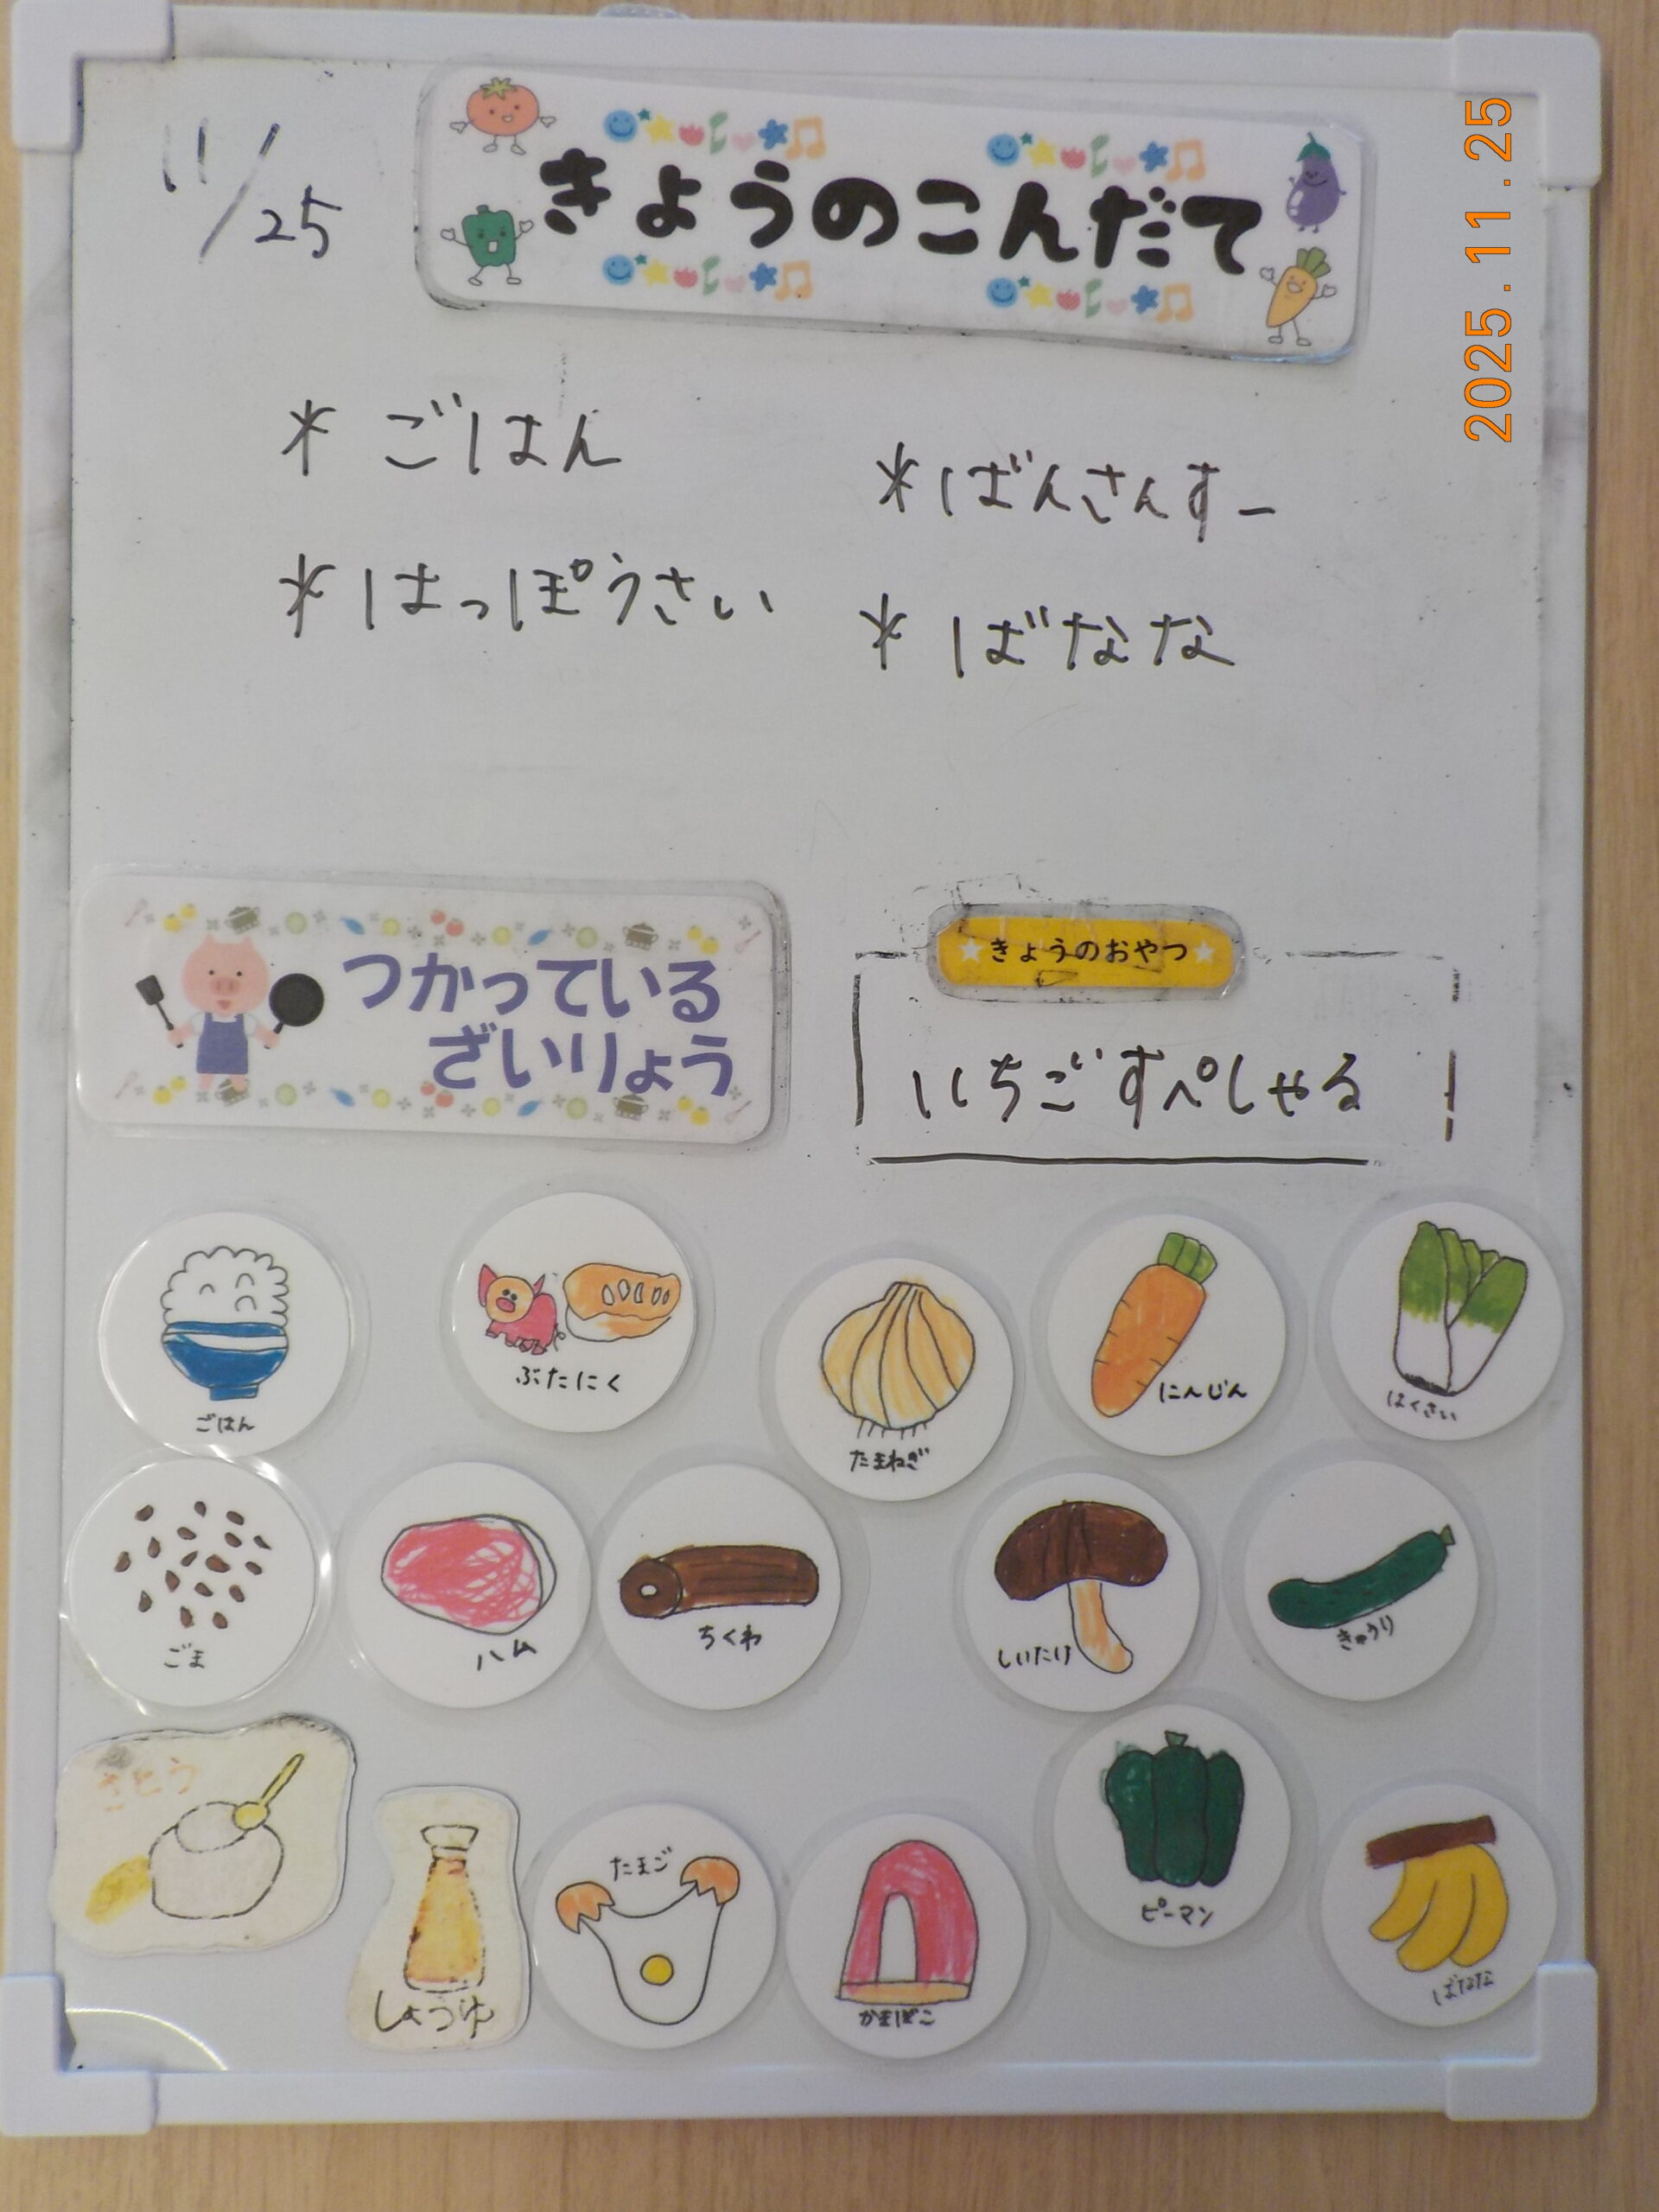 11/25
きょうのこんだて
2025.11.25
* ごはん
* ばんさんすー
* はっぽうさい
* ばなな
つかっている
ざいりょう
きょうのおやつ
いちごすぺしゃる
ごはん
ぶたにく
たまねぎ
にんじん
はくさい
ごま
ハム
ちくわ
しいたけ
きゅうり
さとう
しょうゆ
たまご
かまぼこ
ピーマン
ばなな